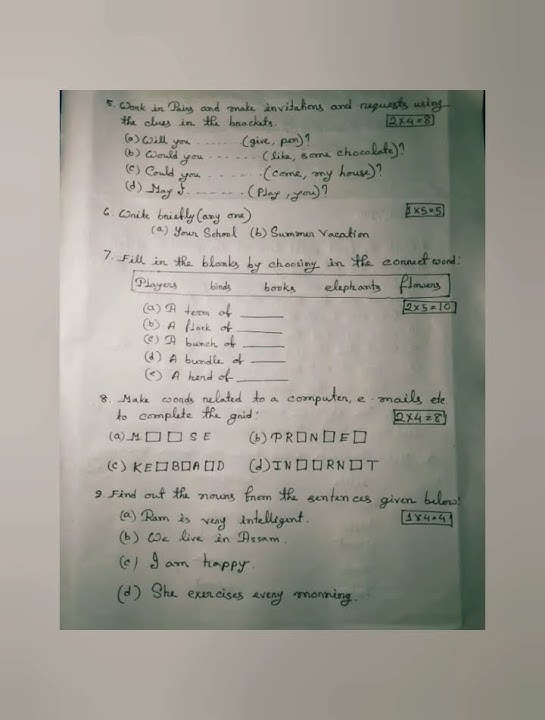 5. Work in Pairs and make invitations and requests using
the clues in the brackets. 2x4=8
(a) Will you ....... (give, pen)?
(b) Would you ....... (like, some chocolate)?
(c) Could you ....... (come, my house)?
(d) May I ....... (Play, you)?
6. Write briefly (any one) 1x5=5
(a) Your School (b) Summer Vacation
7. Fill in the blanks by choosing in the correct word:
Players birds books elephants flowers
2x5=10
(a) A team of ____
(b) A flock of ____
(c) A bunch of ____
(d) A bundle of ____
(e) A herd of ____
8. Make words related to a computer, e-mails etc
to complete the grid: 2x4=8
(a) M □ □ S E (b) PR□N□E□
(c) KE□B□A□D (d) IN□□RN□T
9. Find out the nouns from the sentences given below:
(a) Ram is very intelligent. 1x4=4
(b) We live in Assam.
(c) I am happy.
(d) She exercises every morning.